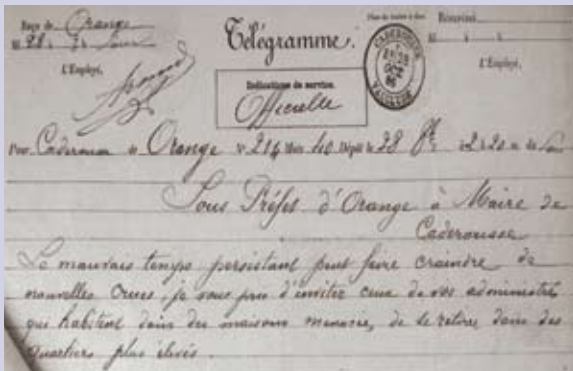 Reçu de Orange
Télégramme.
L'Employé,
Indications de service.
Officielle
CADEROUSSE
28
OCT.
86
VAUCLUSE
L'Employé,
Pour Caderousse de Orange N° 214 Mots 40 Dépôt le 28 8bre à 2h 20 m du Soir
Sous Préfet d'Orange à Maire de
Caderousse
Le mauvais temps persistant peut faire craindre de
nouvelles Crues, je vous prie d'inviter ceux de vos administrés
qui habitent dans des maisons menacées, de se retirer dans des
quartiers plus élevés.